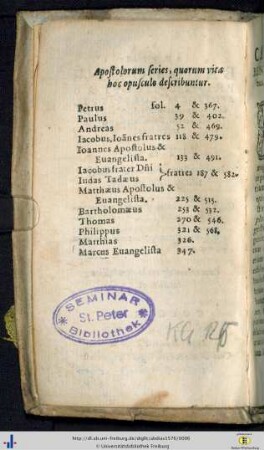 Apostolorum series, quorum vitæ
hoc opusculo describuntur.
Petrus fol. 4 & 367.
Paulus 39 & 402.
Andreas 52 & 469.
Iacobus, Ioãnes fratres 118 & 479.
Ioannes Apostolus &
Euangelista. 133 & 491.
Iacobus frater Dñi
Iudas Tadæus } fratres 187 & 582.
Matthæus Apostolus &
Euangelista. 225 & 515.
Bartholomæus 253 & 532.
Thomas 270 & 546.
Philippus 321 & 561.
Matthias 326.
Marcus Euangelista 347.
SEMINAR
St. Peter
Bibliothek
http://dl.ub.uni-freiburg.de/diglit/
© Universitätsbibliothek Freiburg